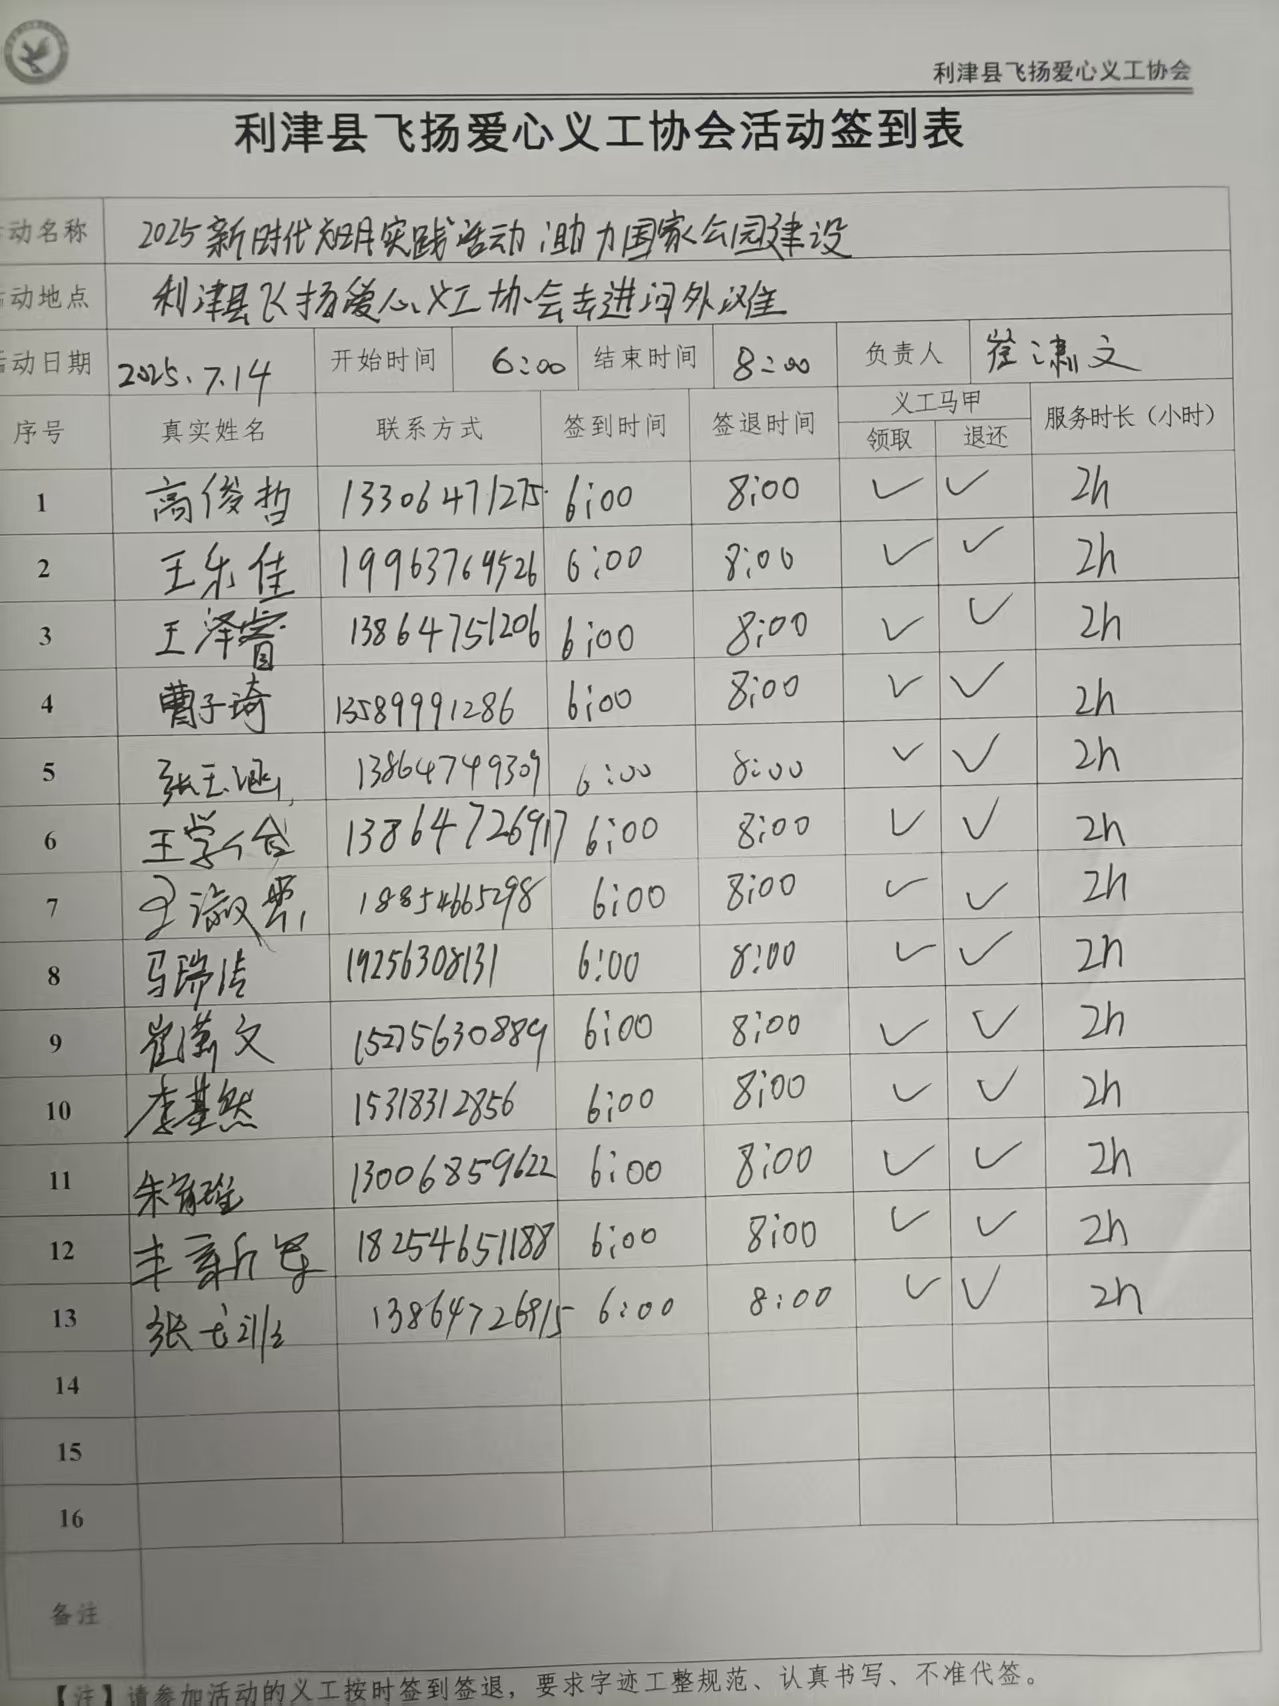 利津县飞扬爱心义工协会
利津县飞扬爱心义工协会活动签到表
动名称 2025新时代文明实践活动 助力国家公园建设
动地点 利津县飞扬爱心义工协会走进河外滩
动日期 2025.7.14 开始时间 6:00 结束时间 8:00 负责人 崔潇文
序号 真实姓名 联系方式 签到时间 签退时间 义工马甲 服务时长（小时）
领取 退还
1 高俊哲 13306471275 6:00 8:00 ✓ ✓ 2h
2 王乐佳 19963769526 6:00 8:00 ✓ ✓ 2h
3 王泽睿 13864751206 6:00 8:00 ✓ ✓ 2h
4 曹子琦 13589991286 6:00 8:00 ✓ ✓ 2h
5 张玉涵 13864749309 6:00 8:00 ✓ ✓ 2h
6 王学 13864726917 6:00 8:00 ✓ ✓ 2h
7 王淑 18854665298 6:00 8:00 ✓ ✓ 2h
8 马瑞洁 19256308131 6:00 8:00 ✓ ✓ 2h
9 崔潇文 15275630889 6:00 8:00 ✓ ✓ 2h
10 李基然 15318312856 6:00 8:00 ✓ ✓ 2h
11 朱 13006859622 6:00 8:00 ✓ ✓ 2h
12 丰新军 18254651188 6:00 8:00 ✓ ✓ 2h
13 张 13864726915 6:00 8:00 ✓ ✓ 2h
14
15
16
备注
【注】请参加活动的义工按时签到签退，要求字迹工整规范、认真书写、不准代签。